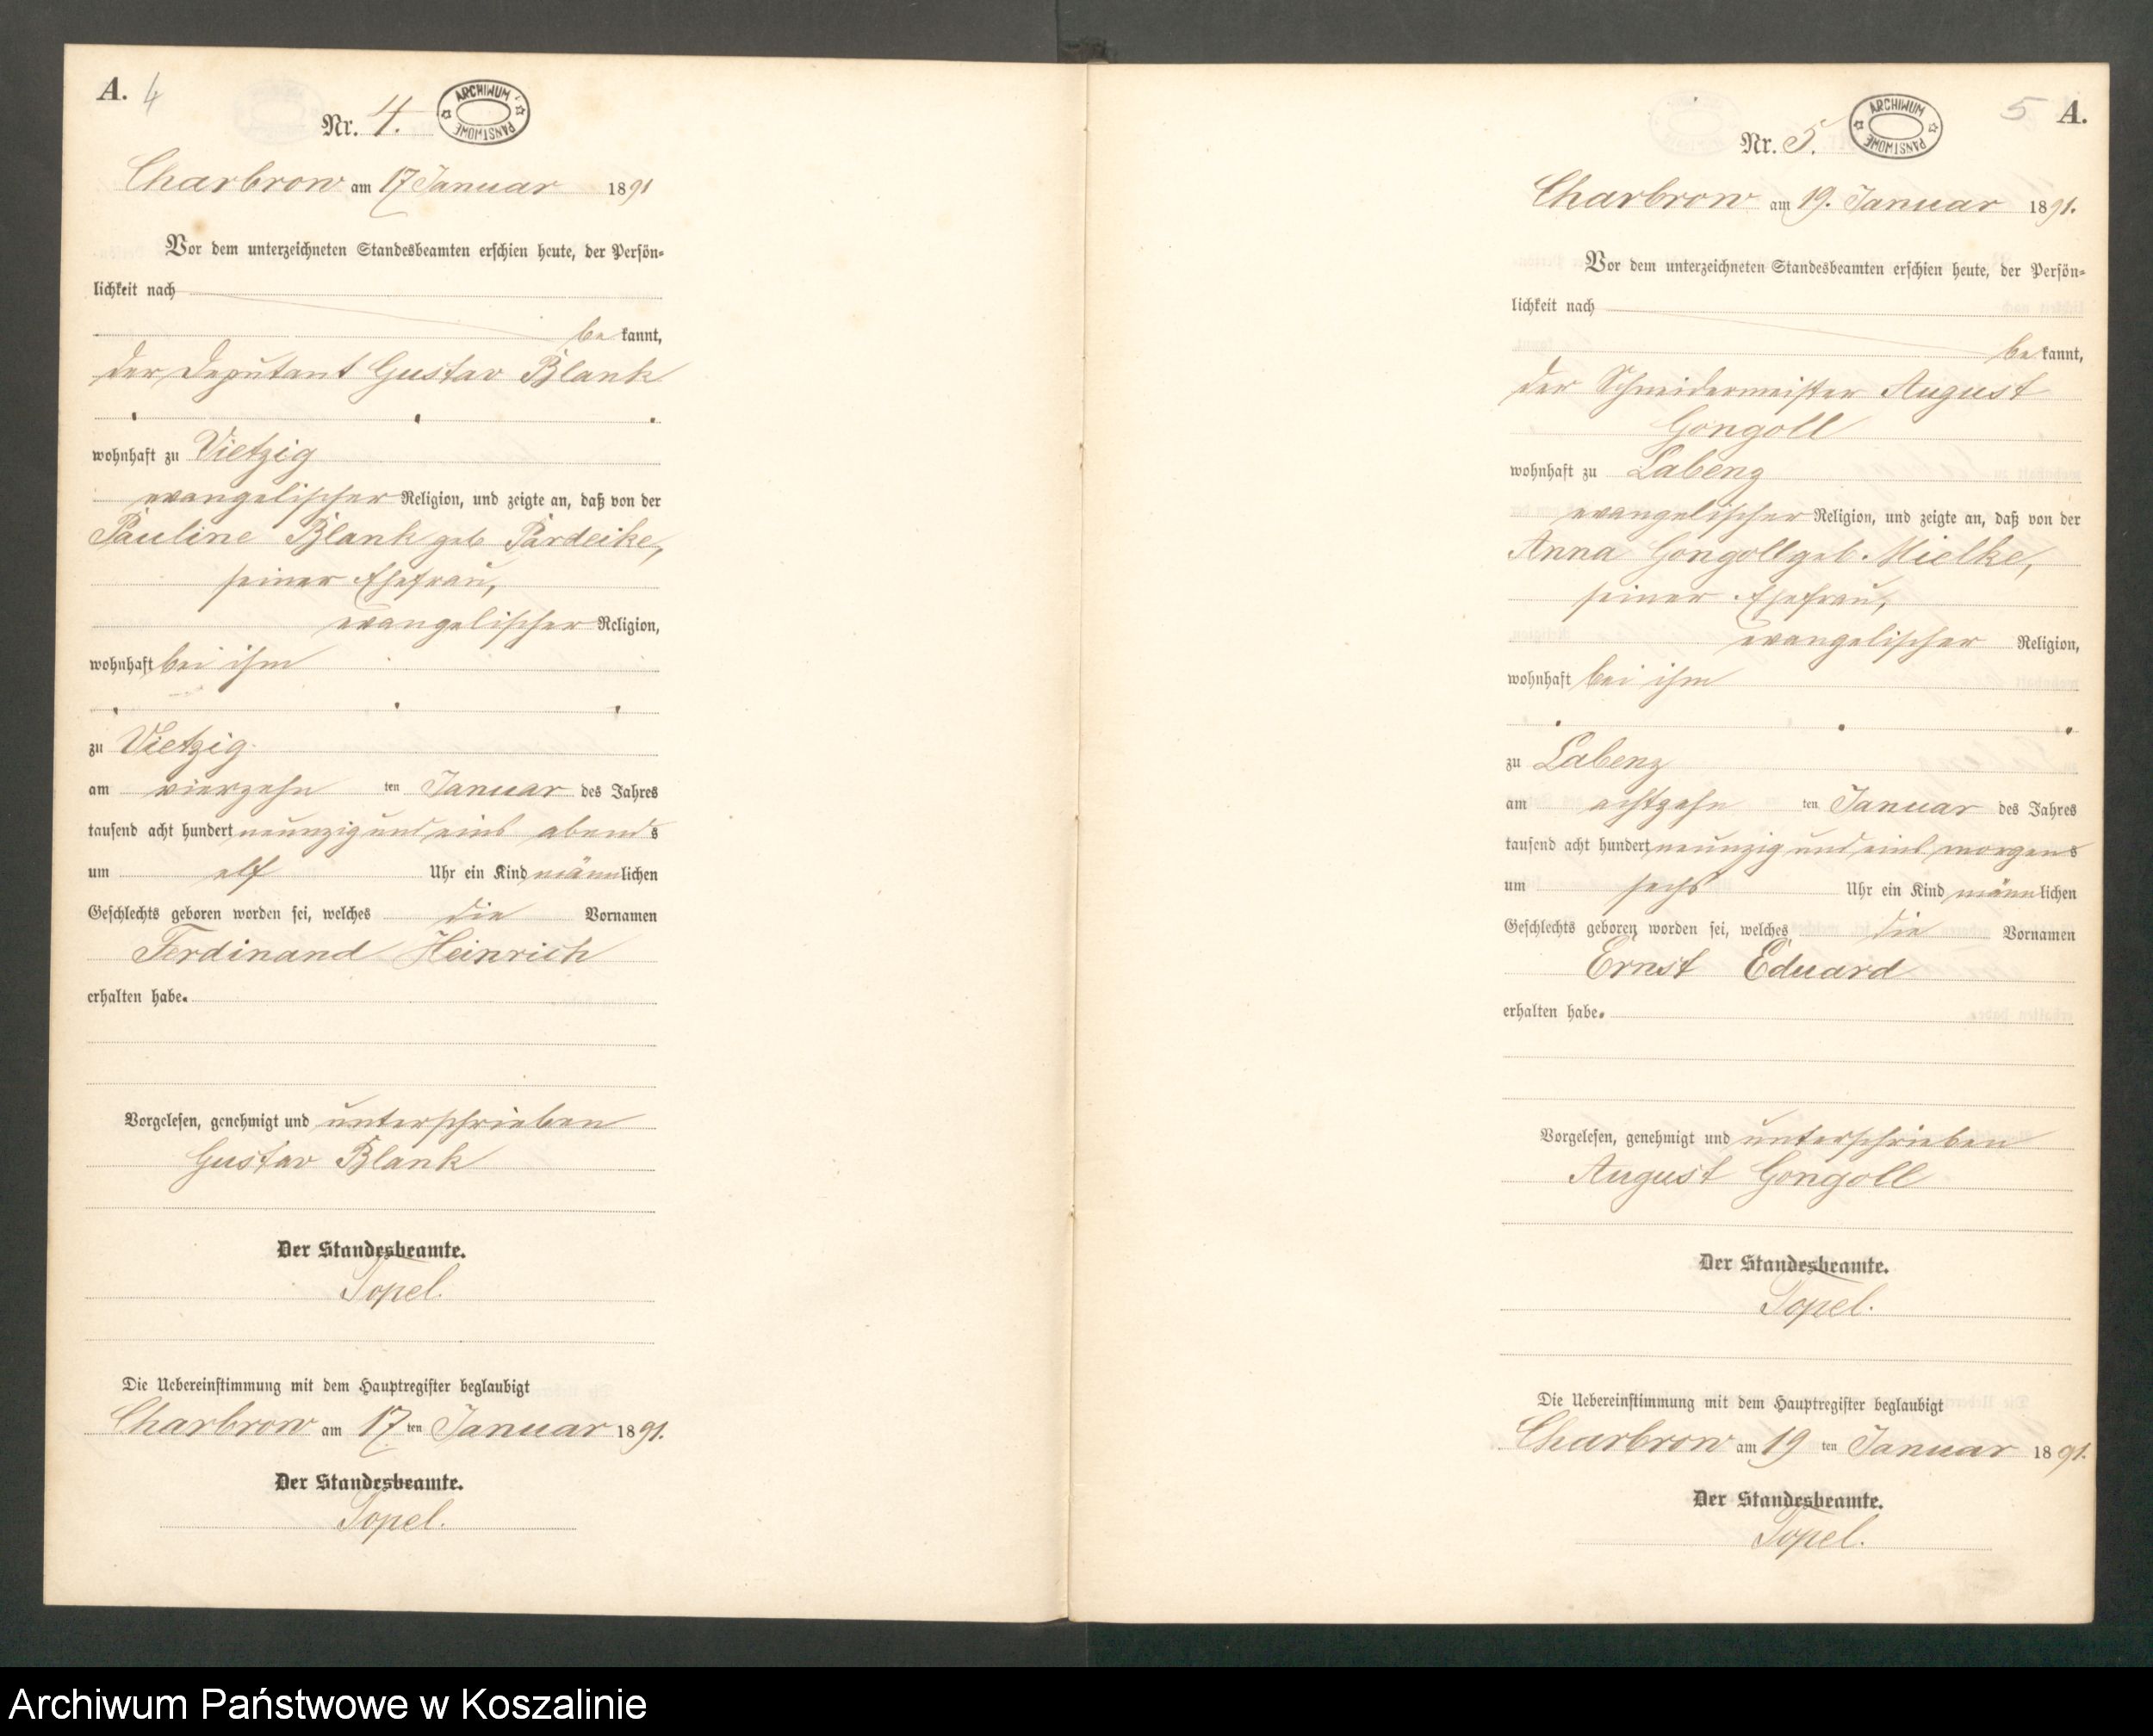 A. 4
Nr. 4.
ARCHIWUM PAŃSTWOWE
Charbrow am 17 Januar 1891
Vor dem unterzeichneten Standesbeamten erschien heute, der Persön-
lichkeit nach
be kannt,
der Deputant Gustav Blank
wohnhaft zu Vietzig
evangelischer Religion, und zeigte an, daß von der
Pauline Blank geb Pardeike,
seiner Ehefrau,
evangelischer Religion,
wohnhaft bei ihm
zu Vietzig.
am vierzehn ten Januar des Jahres
tausend acht hundert neunzig und eins abends
um elf Uhr ein Kind männlichen
Geschlechts geboren worden sei, welches die Vornamen
Ferdinand Heinrich
erhalten habe.
Vorgelesen, genehmigt und unterschrieben
Gustav Blank
Der Standesbeamte.
Topel.
Die Uebereinstimmung mit dem Hauptregister beglaubigt
Charbrow am 17 ten Januar 1891.
Der Standesbeamte.
Topel.
5 A.
Nr. 5.
ARCHIWUM PAŃSTWOWE
Charbrow am 19. Januar 1891.
Vor dem unterzeichneten Standesbeamten erschien heute, der Persön-
lichkeit nach
be kannt,
der Schneidermeister August
Gongoll
wohnhaft zu Labenz
evangelischer Religion, und zeigte an, daß von der
Anna Gongoll geb. Mielke,
seiner Ehefrau,
evangelischer Religion,
wohnhaft bei ihm
zu Labenz
am achtzehn ten Januar des Jahres
tausend acht hundert neunzig und eins morgens
um sechs Uhr ein Kind männlichen
Geschlechts geboren worden sei, welches die Vornamen
Ernst Eduard
erhalten habe.
Vorgelesen, genehmigt und unterschrieben
August Gongoll
Der Standesbeamte.
Topel.
Die Uebereinstimmung mit dem Hauptregister beglaubigt
Charbrow am 19 ten Januar 1891.
Der Standesbeamte.
Topel.
Archiwum Państwowe w Koszalinie